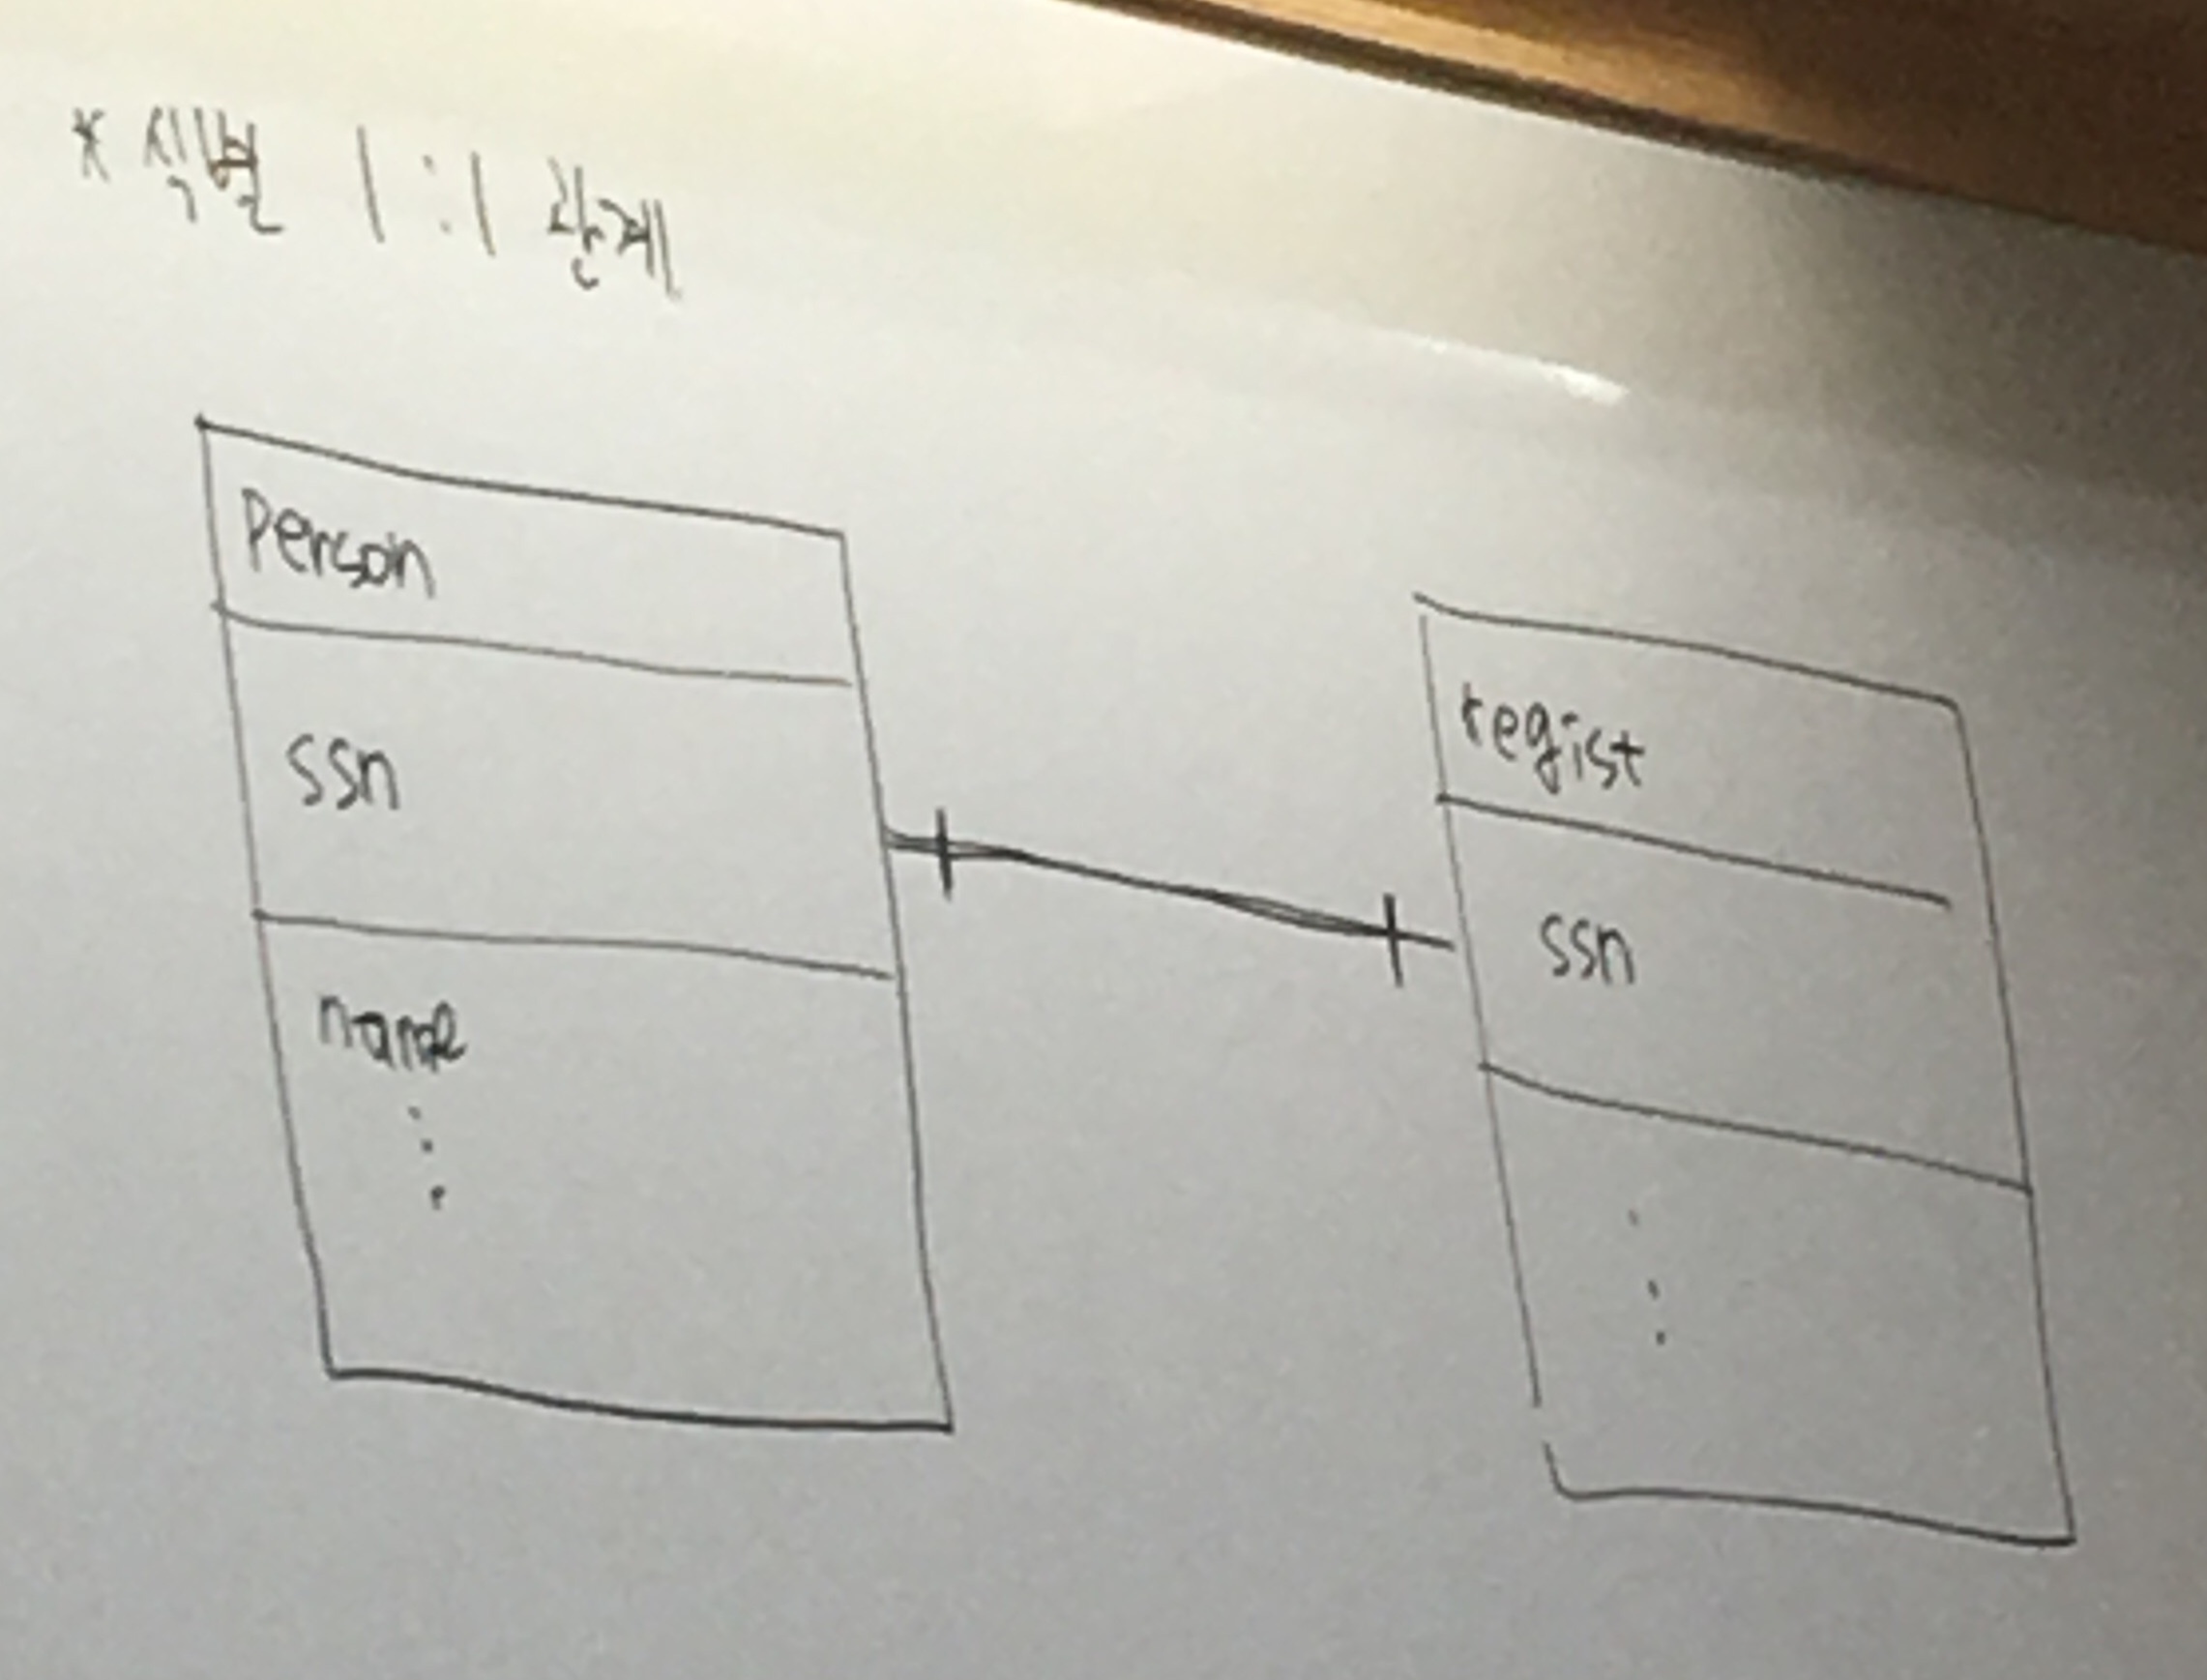 * 식별 1:1 관계
Person
ssn
name
regist
ssn